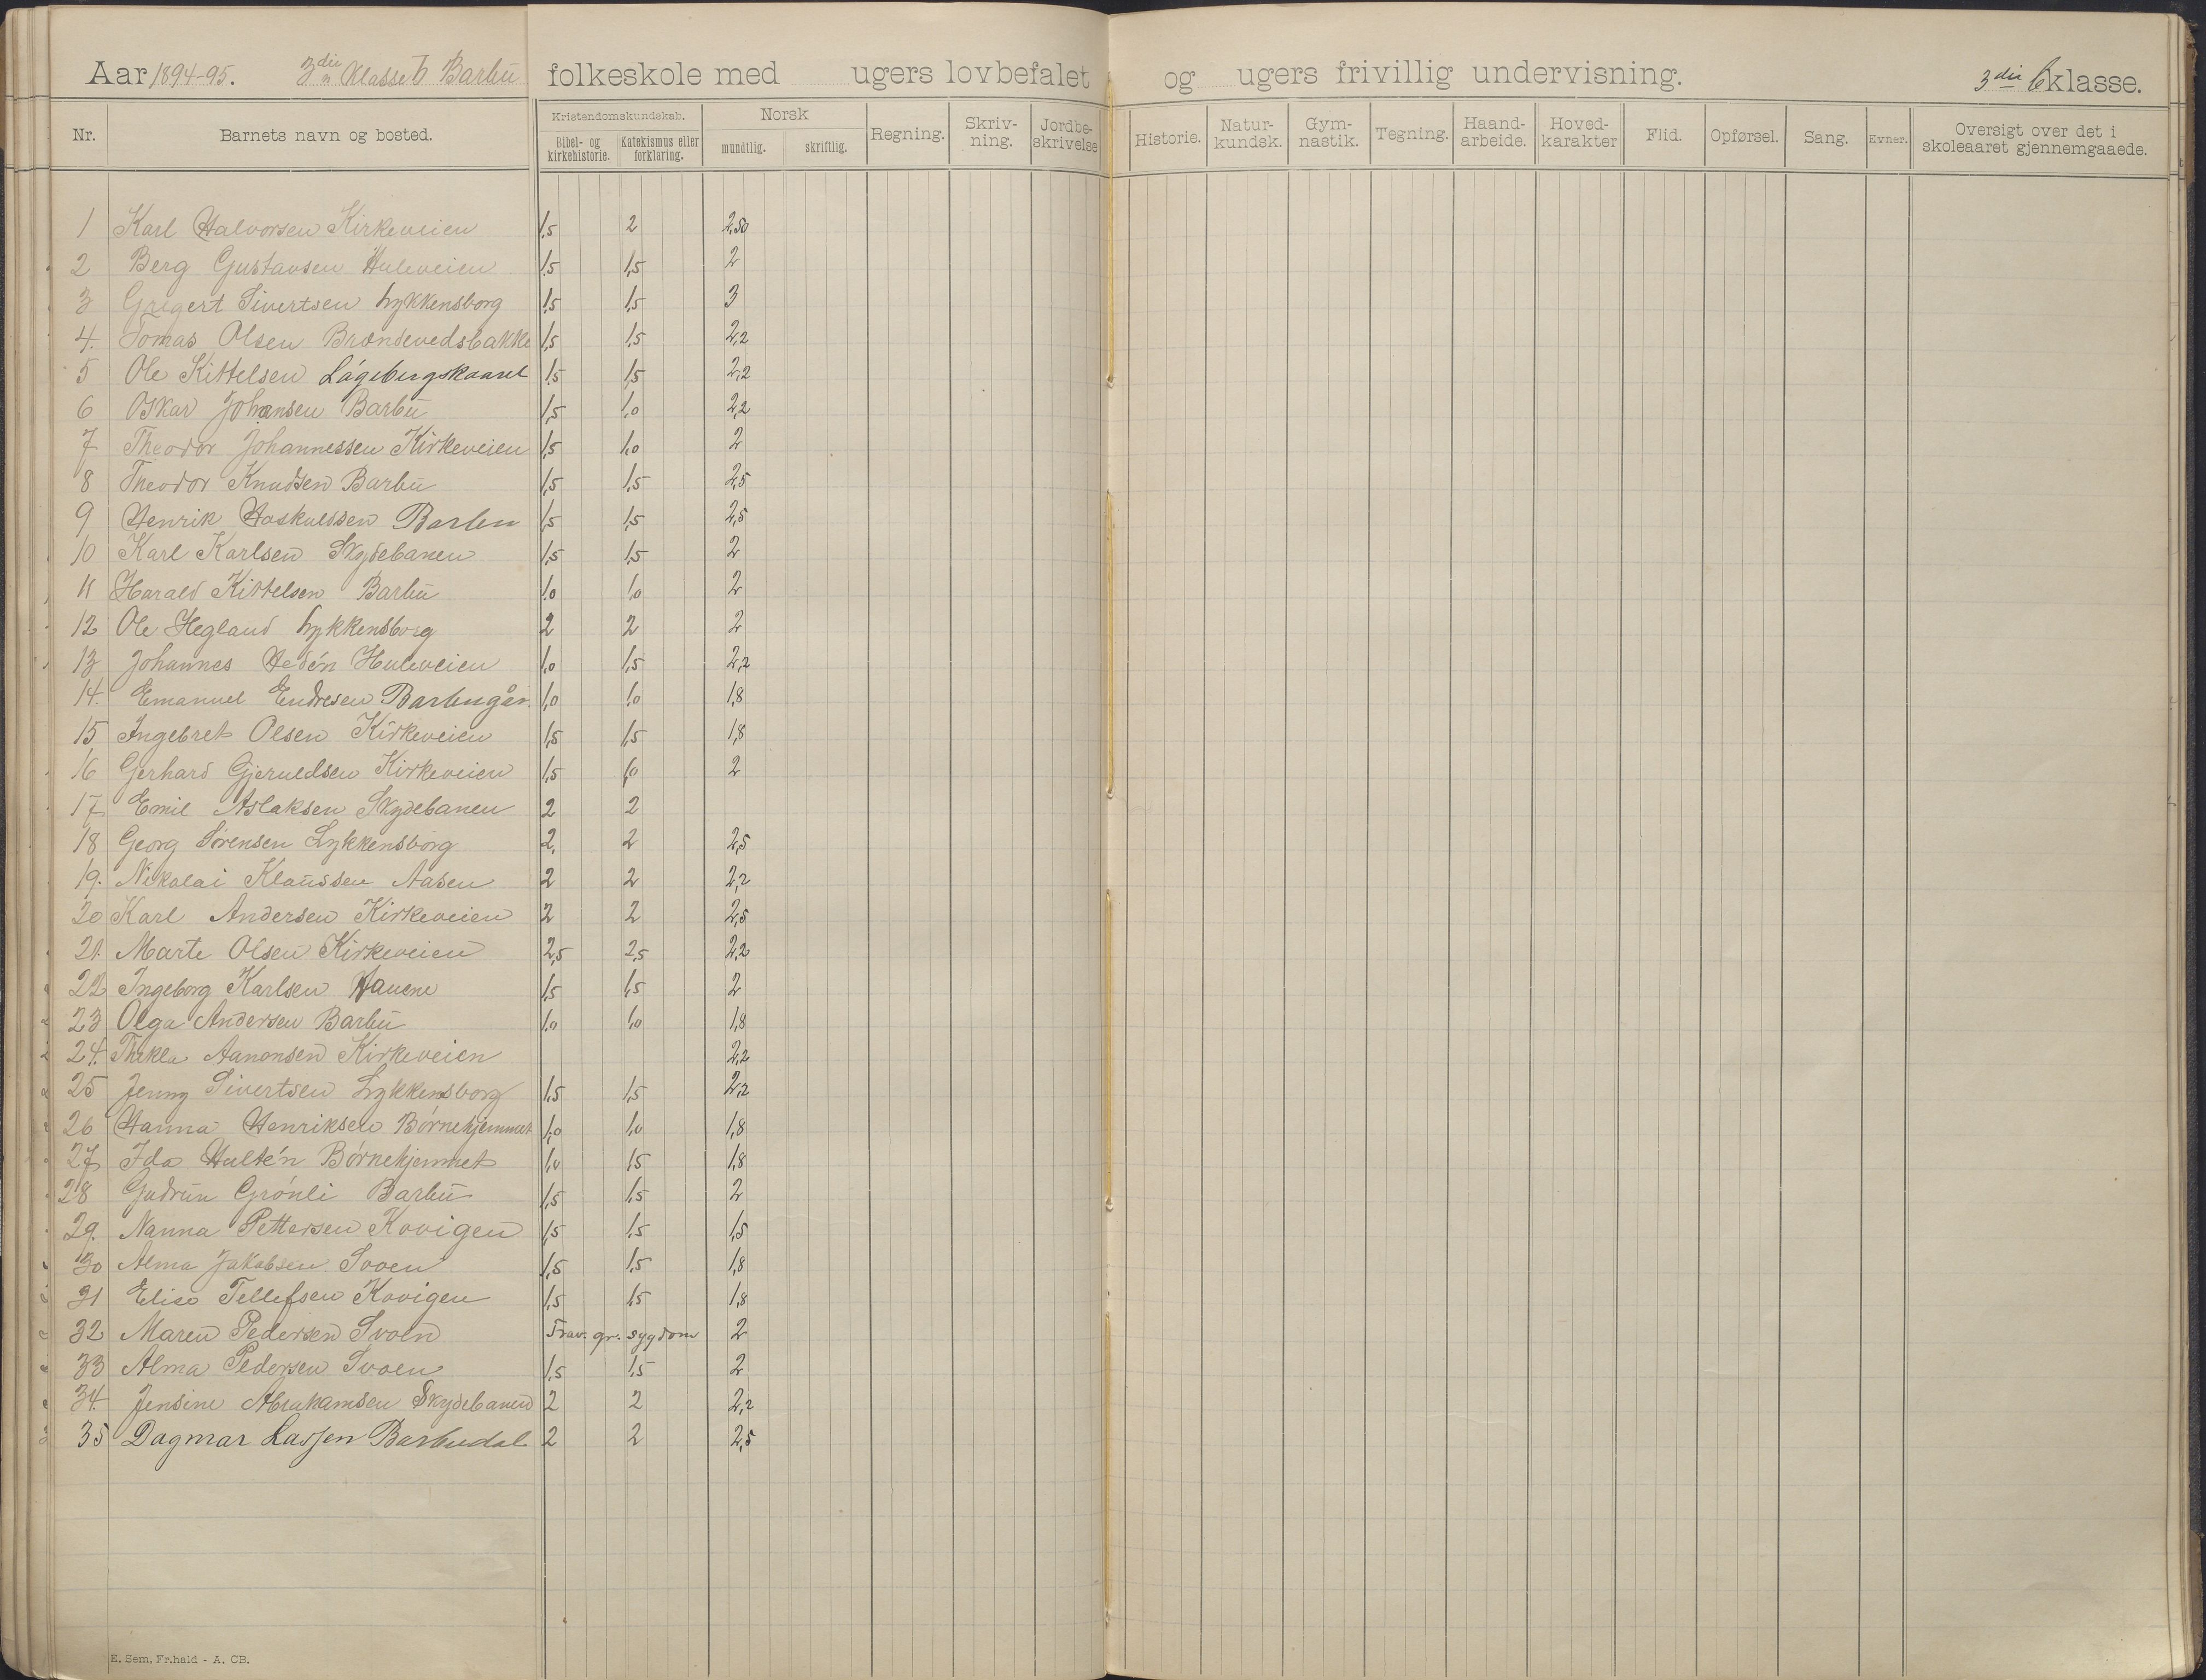 Aar 1894-95. 3die Klasse b Barbu folkeskole med ugers lovbefalet og ugers frivillig undervisning. 3die b klasse.
Nr. Barnets navn og bosted. Kristendomskundskab. Bibel- og kirkehistorie. Katekismus eller forklaring. Norsk mundtlig. skriftlig. Regning. Skriv-ning. Jordbe-skrivelse Historie. Natur-kundsk. Gym-nastik. Tegning. Haand-arbeide. Hoved-karakter Flid. Opførsel. Sang. Evner. Oversigt over det i skoleaaret gjennemgaaede.
1 Karl Halvorsen Kirkeveien 1,5 2 2,50
2 Berg Gustavsen Huleveien 1,5 1,5 2
3 Gregert Sivertsen Lykkensborg 1,5 1,5 3
4. Tomas Olsen Brændevedsbakke 1,5 1,5 2,2
5 Ole Kittelsen 1,5 1,5 2,2
6 Oskar Johansen Barbu 1,5 1,0 2,2
7 Theodor Johannessen Kirkeveien 1,5 1,0 2
8 Theodor Knudsen Barbu 1,5 1,5 2,5
9 Henrik Haskulssen Barbu 1,5 1,5 2,5
10 Karl Karlsen Skydebanen 1,5 1,5 2
11 Harald Kittelsen Barbu 1,0 1,0 2
12 Ole Hegland Lykkensborg 2 2 2
13 Johannes Hedén Huleveien 1,0 1,5 2,2
14. Emanuel Endresen Barbugår. 1,0 1,0 1,8
15 Ingebret Olsen Kirkeveien 1,5 1,5 1,8
16 Gerhard Gjeruldsen Kirkeveien 1,5 1,0 2
17 Emil Aslaksen Skydebanen 2 2
18 Georg Sørensen Lykkensborg 2. 2 2,5
19. Nikolai Klaussen Aasen 2 2 2,2
20 Karl Andersen Kirkeveien 2 2 2,5
21. Marte Olsen Kirkeveien 2,5 2,5 2,2
22 Ingeborg Karlsen Havene 1,5 1,5 2
23 Olga Andersen Barbu 1,0 1,0 1,8
24. Thekla Aanonsen Kirkeveien 2,2
25 Jenny Sivertsen Lykkensborg 1,5 1,5 2,2
26 Hanna Henriksen Børnehjemmet 1,0 1,0 1,8
27 Ida Hultén Børnehjemmet 1,0 1,5 1,8
28 Gudrun Grönli Barbu 1,5 1,5 2
29. Nanna Pettersen Kovigen 1,5 1,5 1,5
30 Alma Jakobsen Svoen 1,5 1,5 1,8
31 Elise Tellefsen Kovigen 1,5 1,5 1,8
32 Maren Pedersen Svoen Frav. gr. sygdom 2
33 Alma Pedersen Svoen 1,5 1,5 2
34. Jensine Abrahamsen Skydebanen 2 2 2,2
35 Dagmar Lassen Barbudal 2 2 2,5
E. Sem, Fr.hald - A. CB.